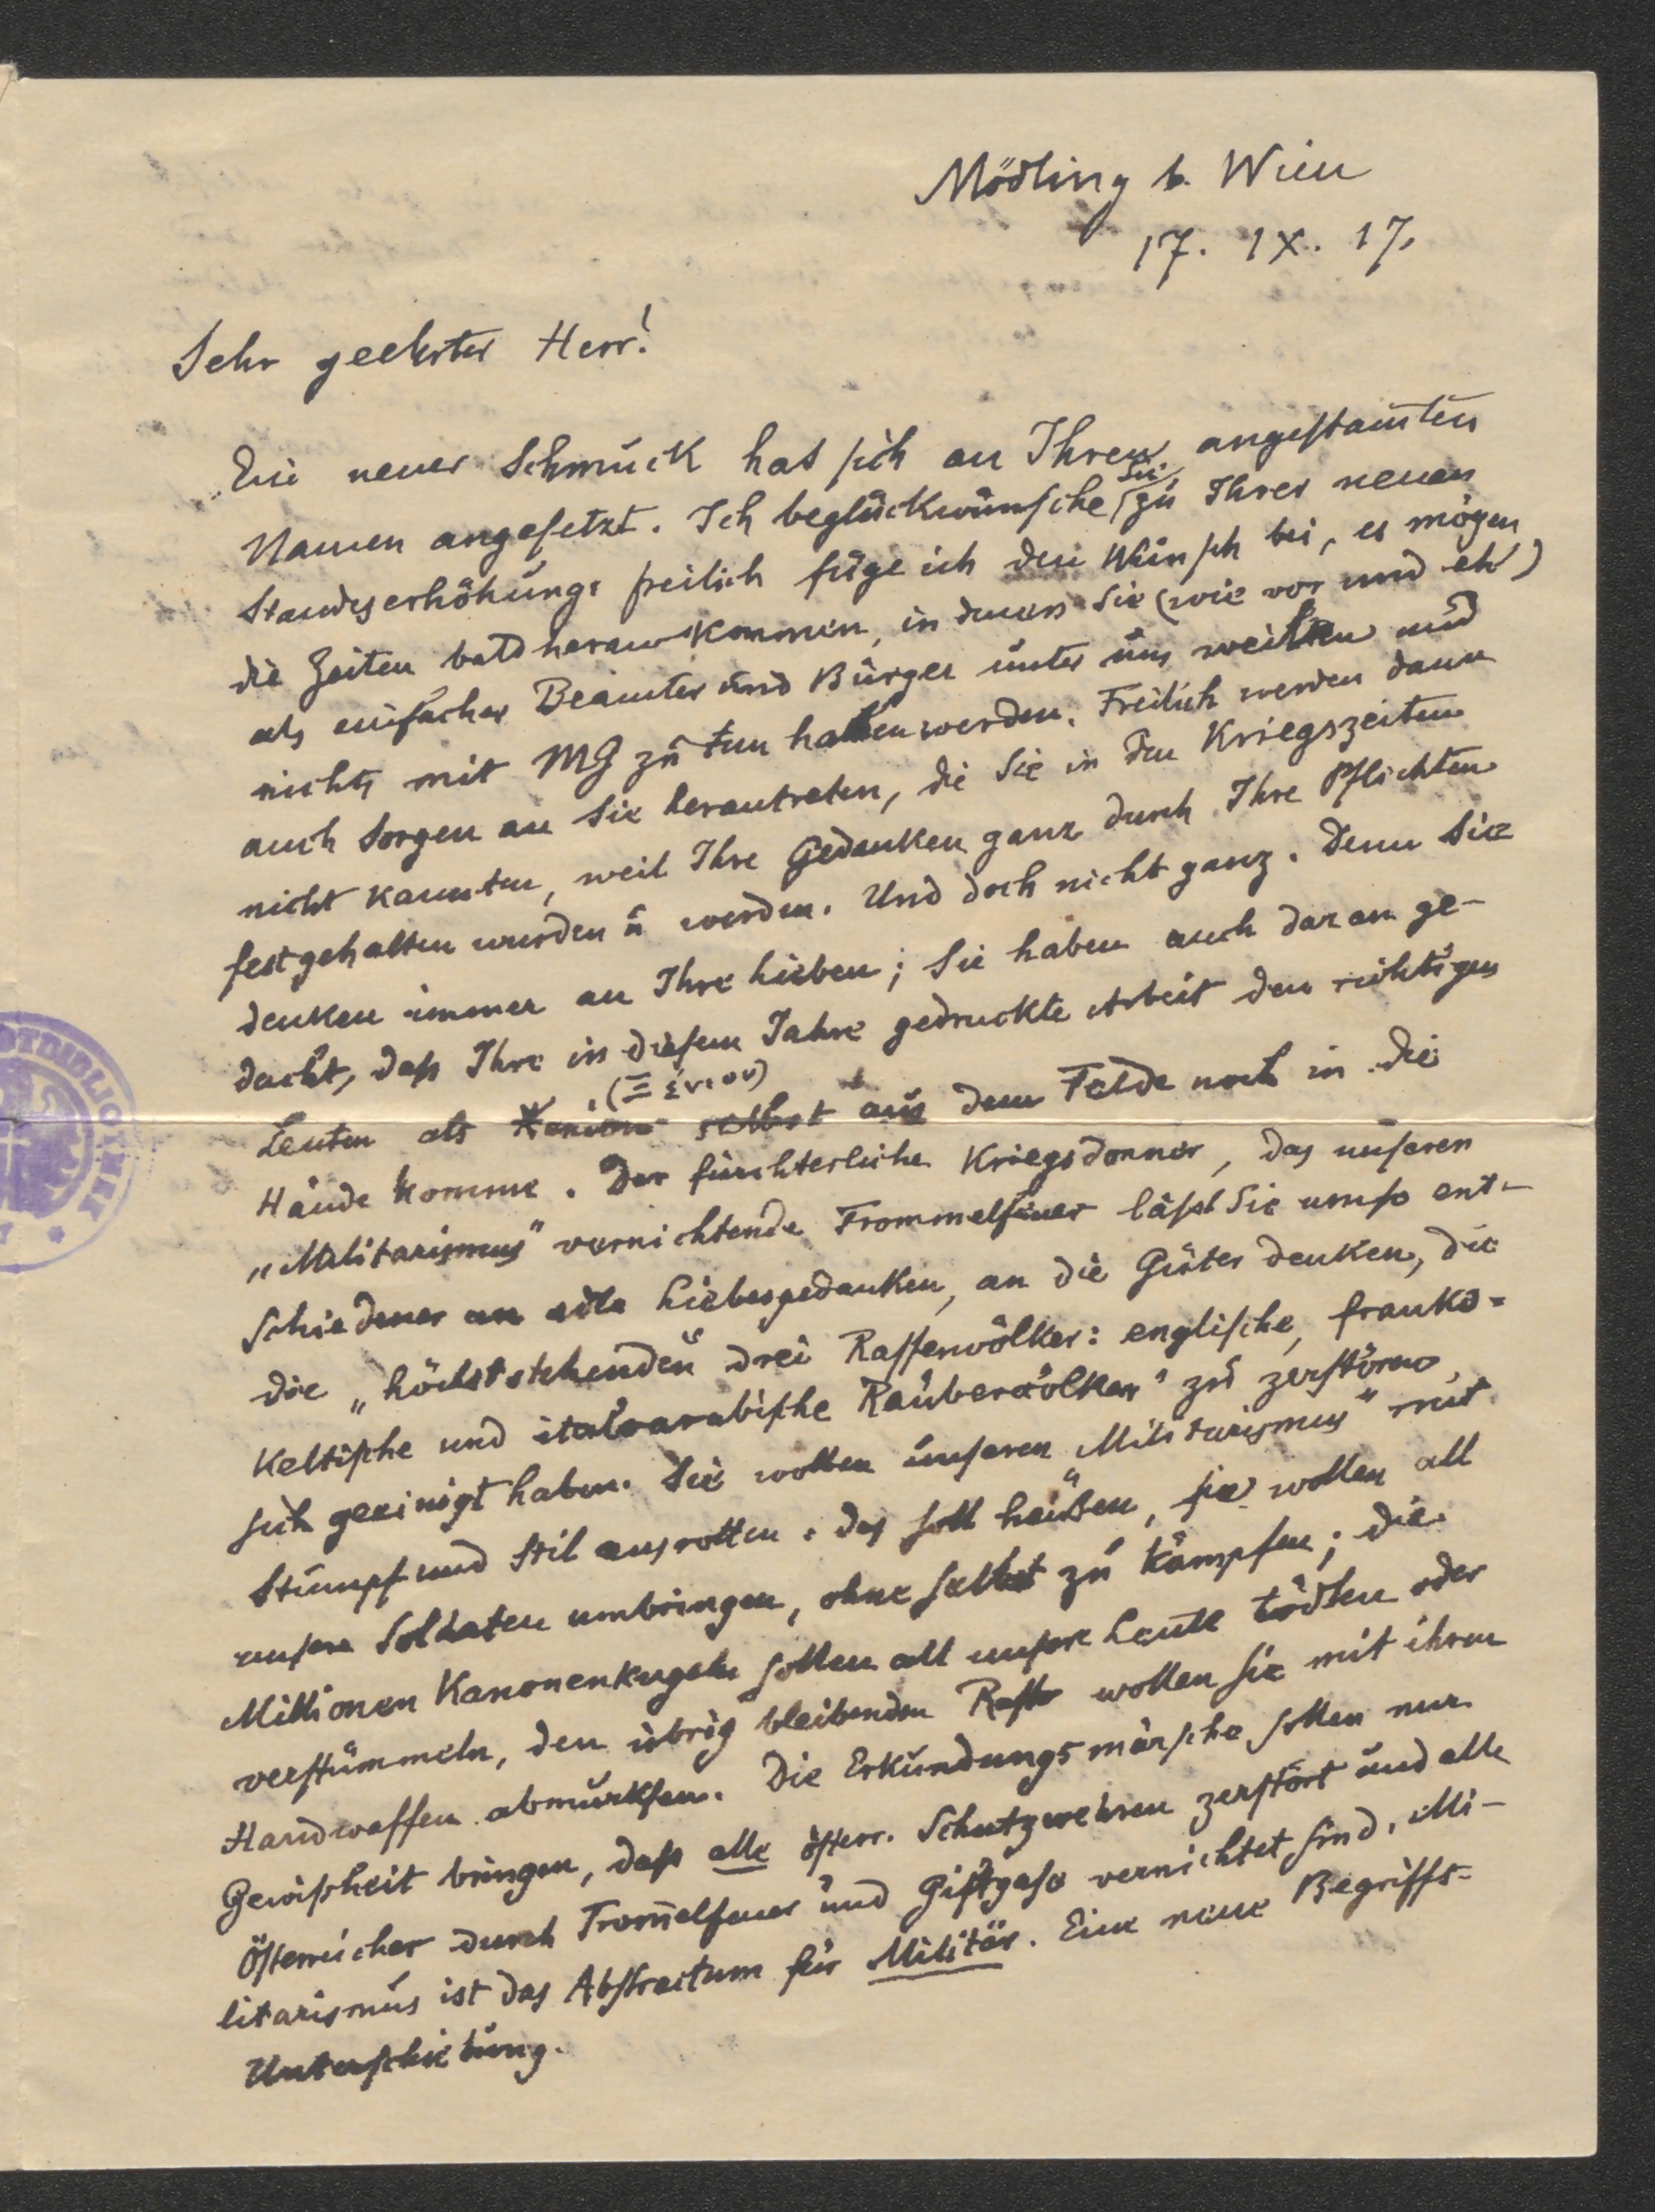 Mödling b. Wien
17. IX. 17.
Sehr geehrter Herr!
Ein neuer Schmuck hat sich an Ihren angestam̅ten
Namen angesetzt. Ich beglückwünsche Sie zu Ihrer neuen
Standeserhöhung; freilich füge ich den Wunsch bei, es mögen
die Zeiten bald heraufkommen, in denen Sie (wie vor und eh')
als einfacher Beamter und Bürger unter uns weilen und
nichts mit MG zu tun haben werden. Freilich werden dann
auch Sorgen an Sie herantreten, die Sie in den Kriegszeiten
nicht kannten, weil Ihre Gedanken ganz durch Ihre Pflichten
festgehalten wurden u werden. Und doch nicht ganz. Denn Sie
denken immer an Ihre Lieben; Sie haben auch daran ge-
dacht, dass Ihre in diesem Jahre gedruckte Arbeit den richtigen
Leuten als Xenion (Ξένιον) selbst aus dem Felde noch in die
Hände komme. Der fürchterliche Kriegsdonner, das unseren
„Militarismus" vernichtende Trommelfeuer lässt Sie umso ent-
schiedener an edle Liebesgedanken, an die Güter denken, die
die „höchststehenden drei Rassenvölker: englische, franko-
keltische und italoarabische Räubervölker" zu zerstören
sich geeinigt haben. Sie wollen unseren „Militarismus" mit
Stumpf und Stil ausrotten. das soll heißen, sie wollen all
unsere Soldaten umbringen, ohne selbst zu kämpfen; die
Millionen Kanonenkugeln sollen all unsere Leute tödten oder
verstümmeln, den übrig bleibenden Rest wollen sie mit ihren
Handwaffen abmurksen. Die Erkundungsmärsche sollen nur
Gewissheit bringen, dass alle österr. Schutzwehren zerstört und alle
Österreicher durch Trom̅elfeuer und Giftgase vernichtet sind. Mi-
litarismus ist das Abstractum für Militär. Eine neue Begriffs-
Unterschiebung.